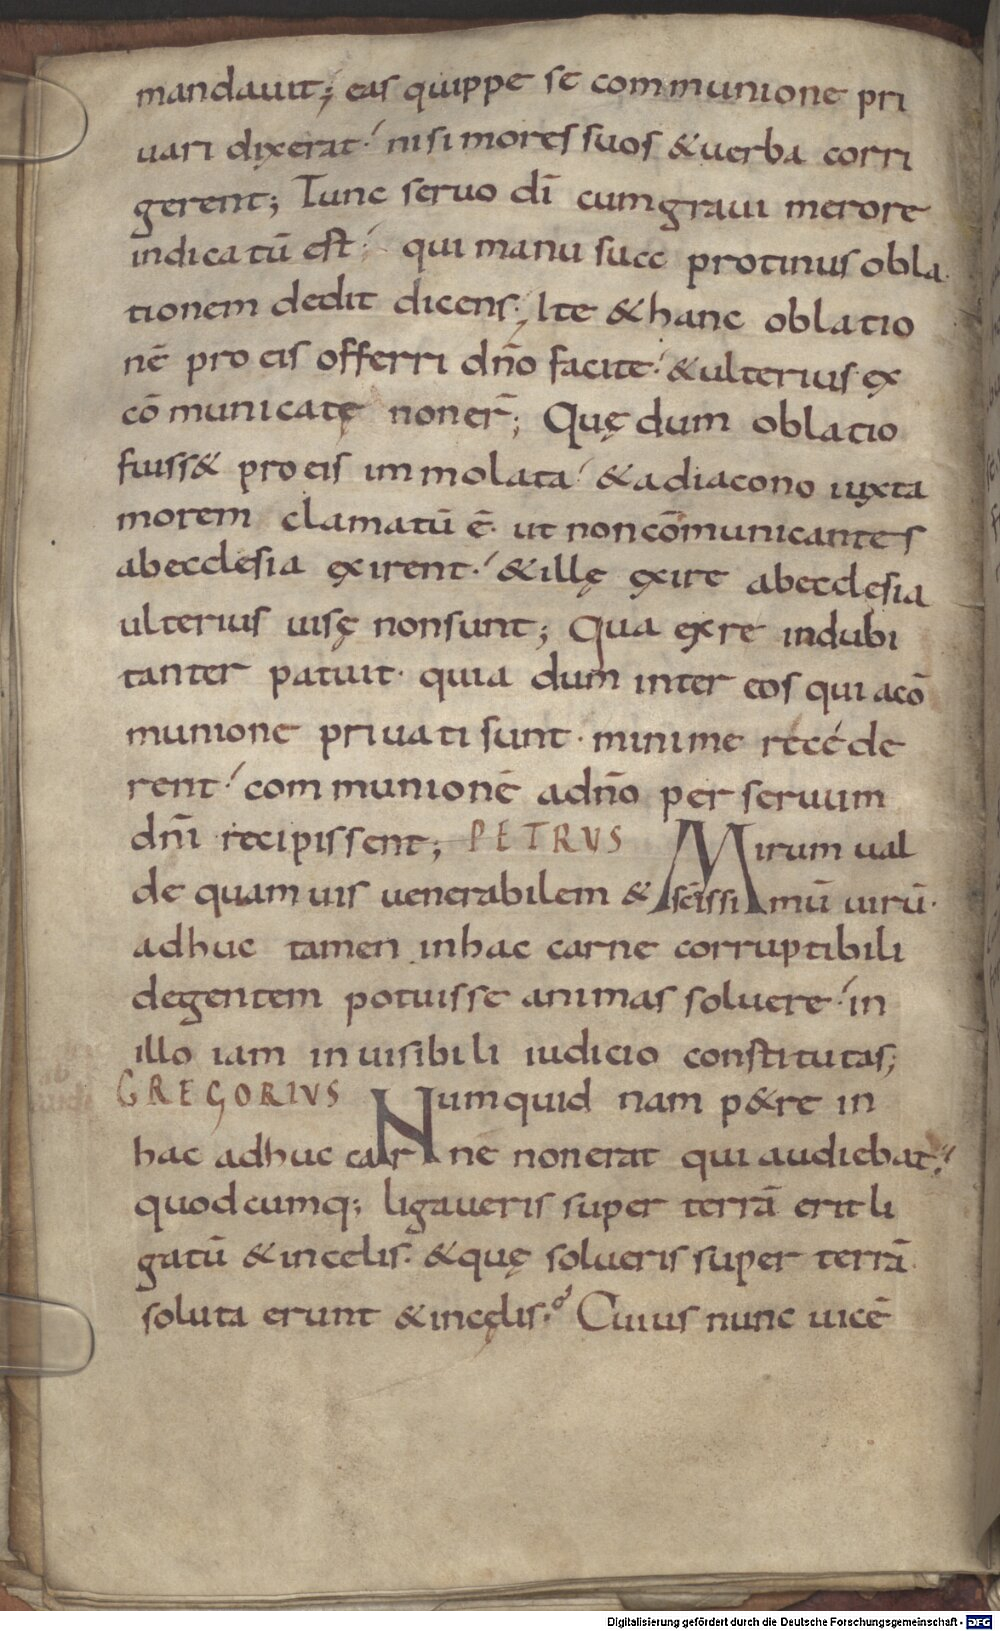 mandauit; eas quippe se communione pri
uari dixerat. nisi mores suos & uerba corri
gerent; Tunc seruo dī cum graui merore
indicatū est. qui manu suę protinus obla
tionem dedit dicens; Ite & hanc oblatio
nē pro eis offerri dn̄o facite. & ulterius ex
cōmunicatę non er̄; Quę dum oblatio
fuiss& pro eis immolata. & a diacono iuxta
morem clamatū ē. ut non cōmunicantes
ab ecclesia exirent. & illę exire ab ecclesia
ulterius uisę non sunt; Qua ex re indubi
tanter patuit. quia dum inter eos qui a cō
munione priuati sunt. minime recede
rent. communionē a dn̄o per seruum
dn̄i recipissent; PETRUS Mirum ual
de quamuis uenerabilem & sc̄issimū uirū.
adhuc tamen in hac carne corruptibili
degentem potuisse animas soluere. in
illo iam inuisibili iudicio constitutas;
GREGORIUS Numquid nam p&re in
hac adhuc carne non erat qui audiebat.
quodcumq; ligaueris super terrā erit li
gatū & in celis. & quę solueris super terrā.
soluta erunt & in cęlis. Cuius nunc uicē
Digitalisierung gefördert durch die Deutsche Forschungsgemeinschaft - DFG